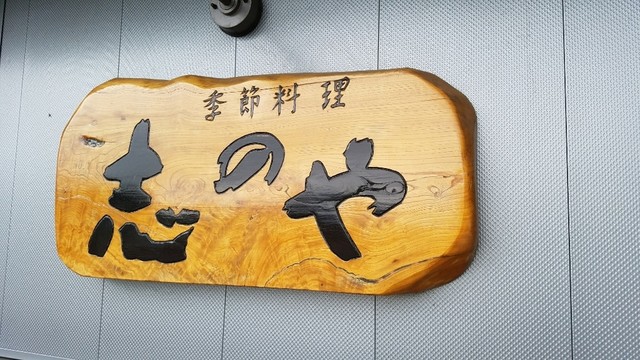 季節料理
志のや